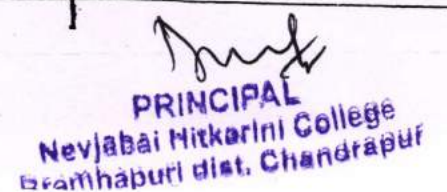 PRINCIPAL
Nevjabai Hitkarini College
Bramhapuri dist. Chandrapur